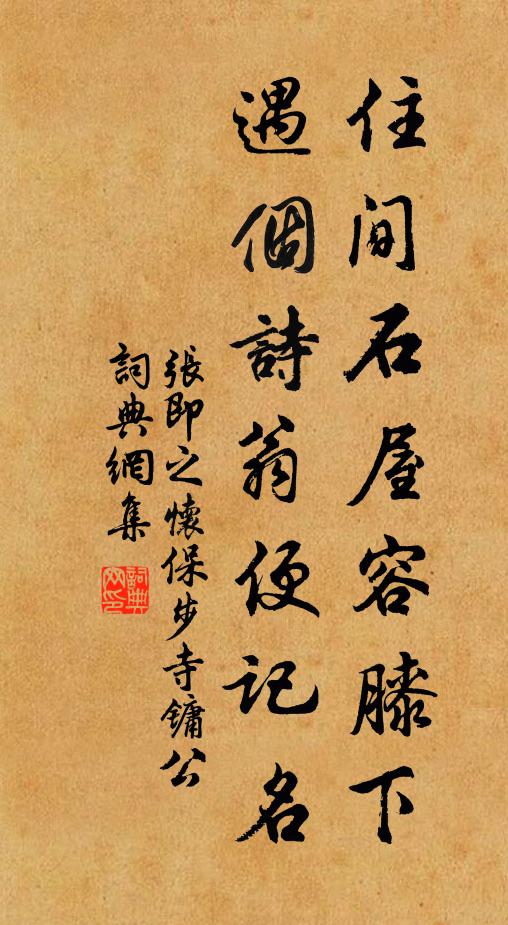 住間石屋容膝下
遇個詩翁便記名
張即之懷保步寺鏞公
詞典網集
詞典網印